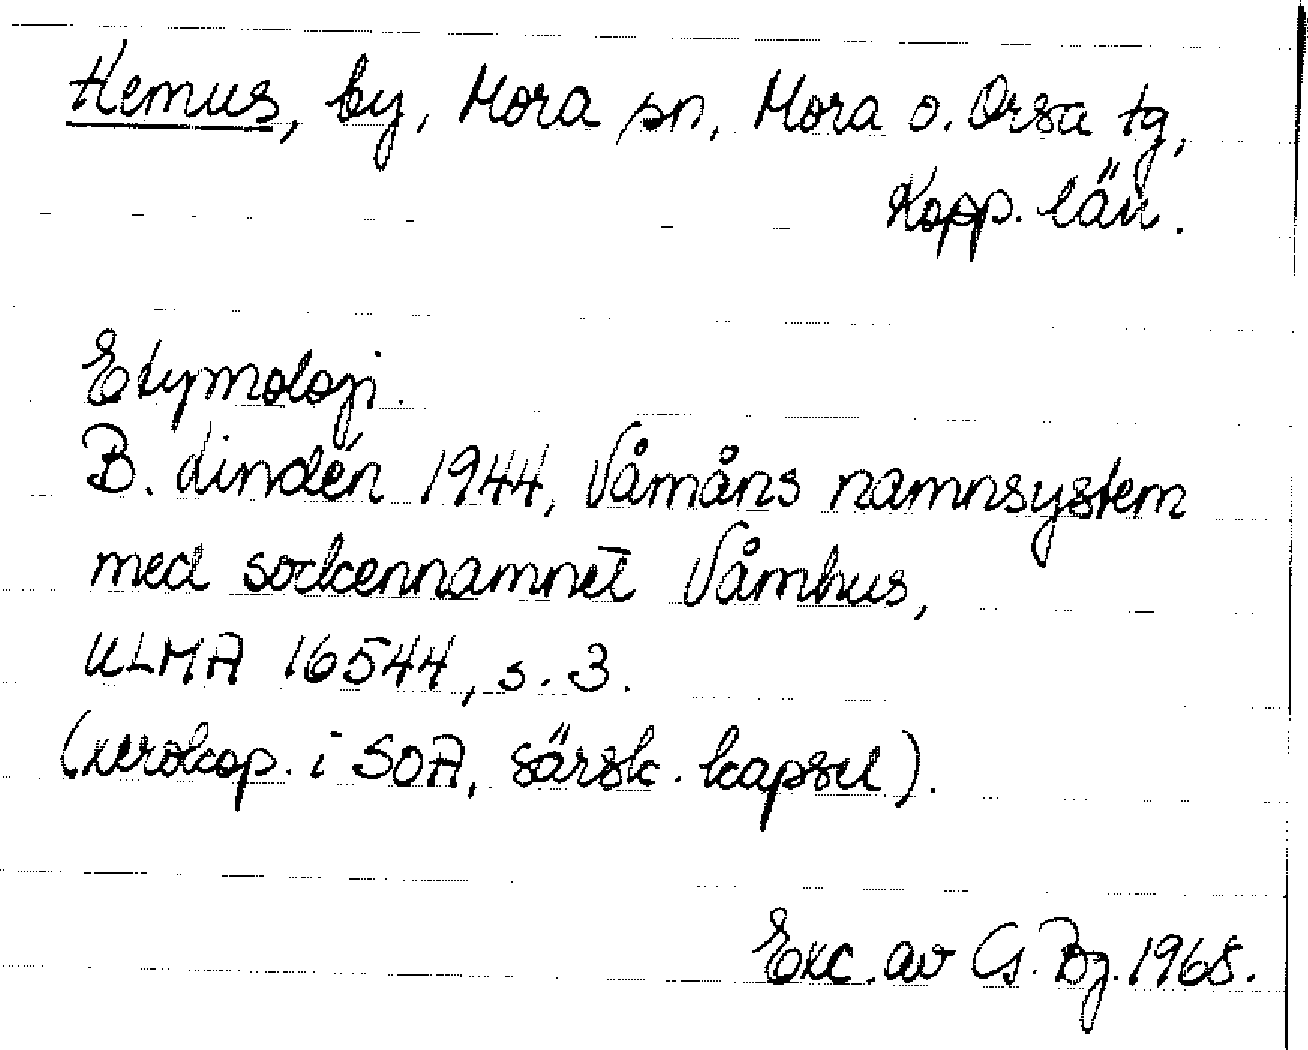 Hemus, by, Mora sn, Mora o. Orsa tg,
Kopp. län.
Etymologi.
B. Lindén 1944, Våmåns namnsystem
med sockennamnet Våmhus,
ULMA 16544, s. 3.
(xerokop. i SOA, särsk. kapsel).
Exc. av G. Bg. 1968.